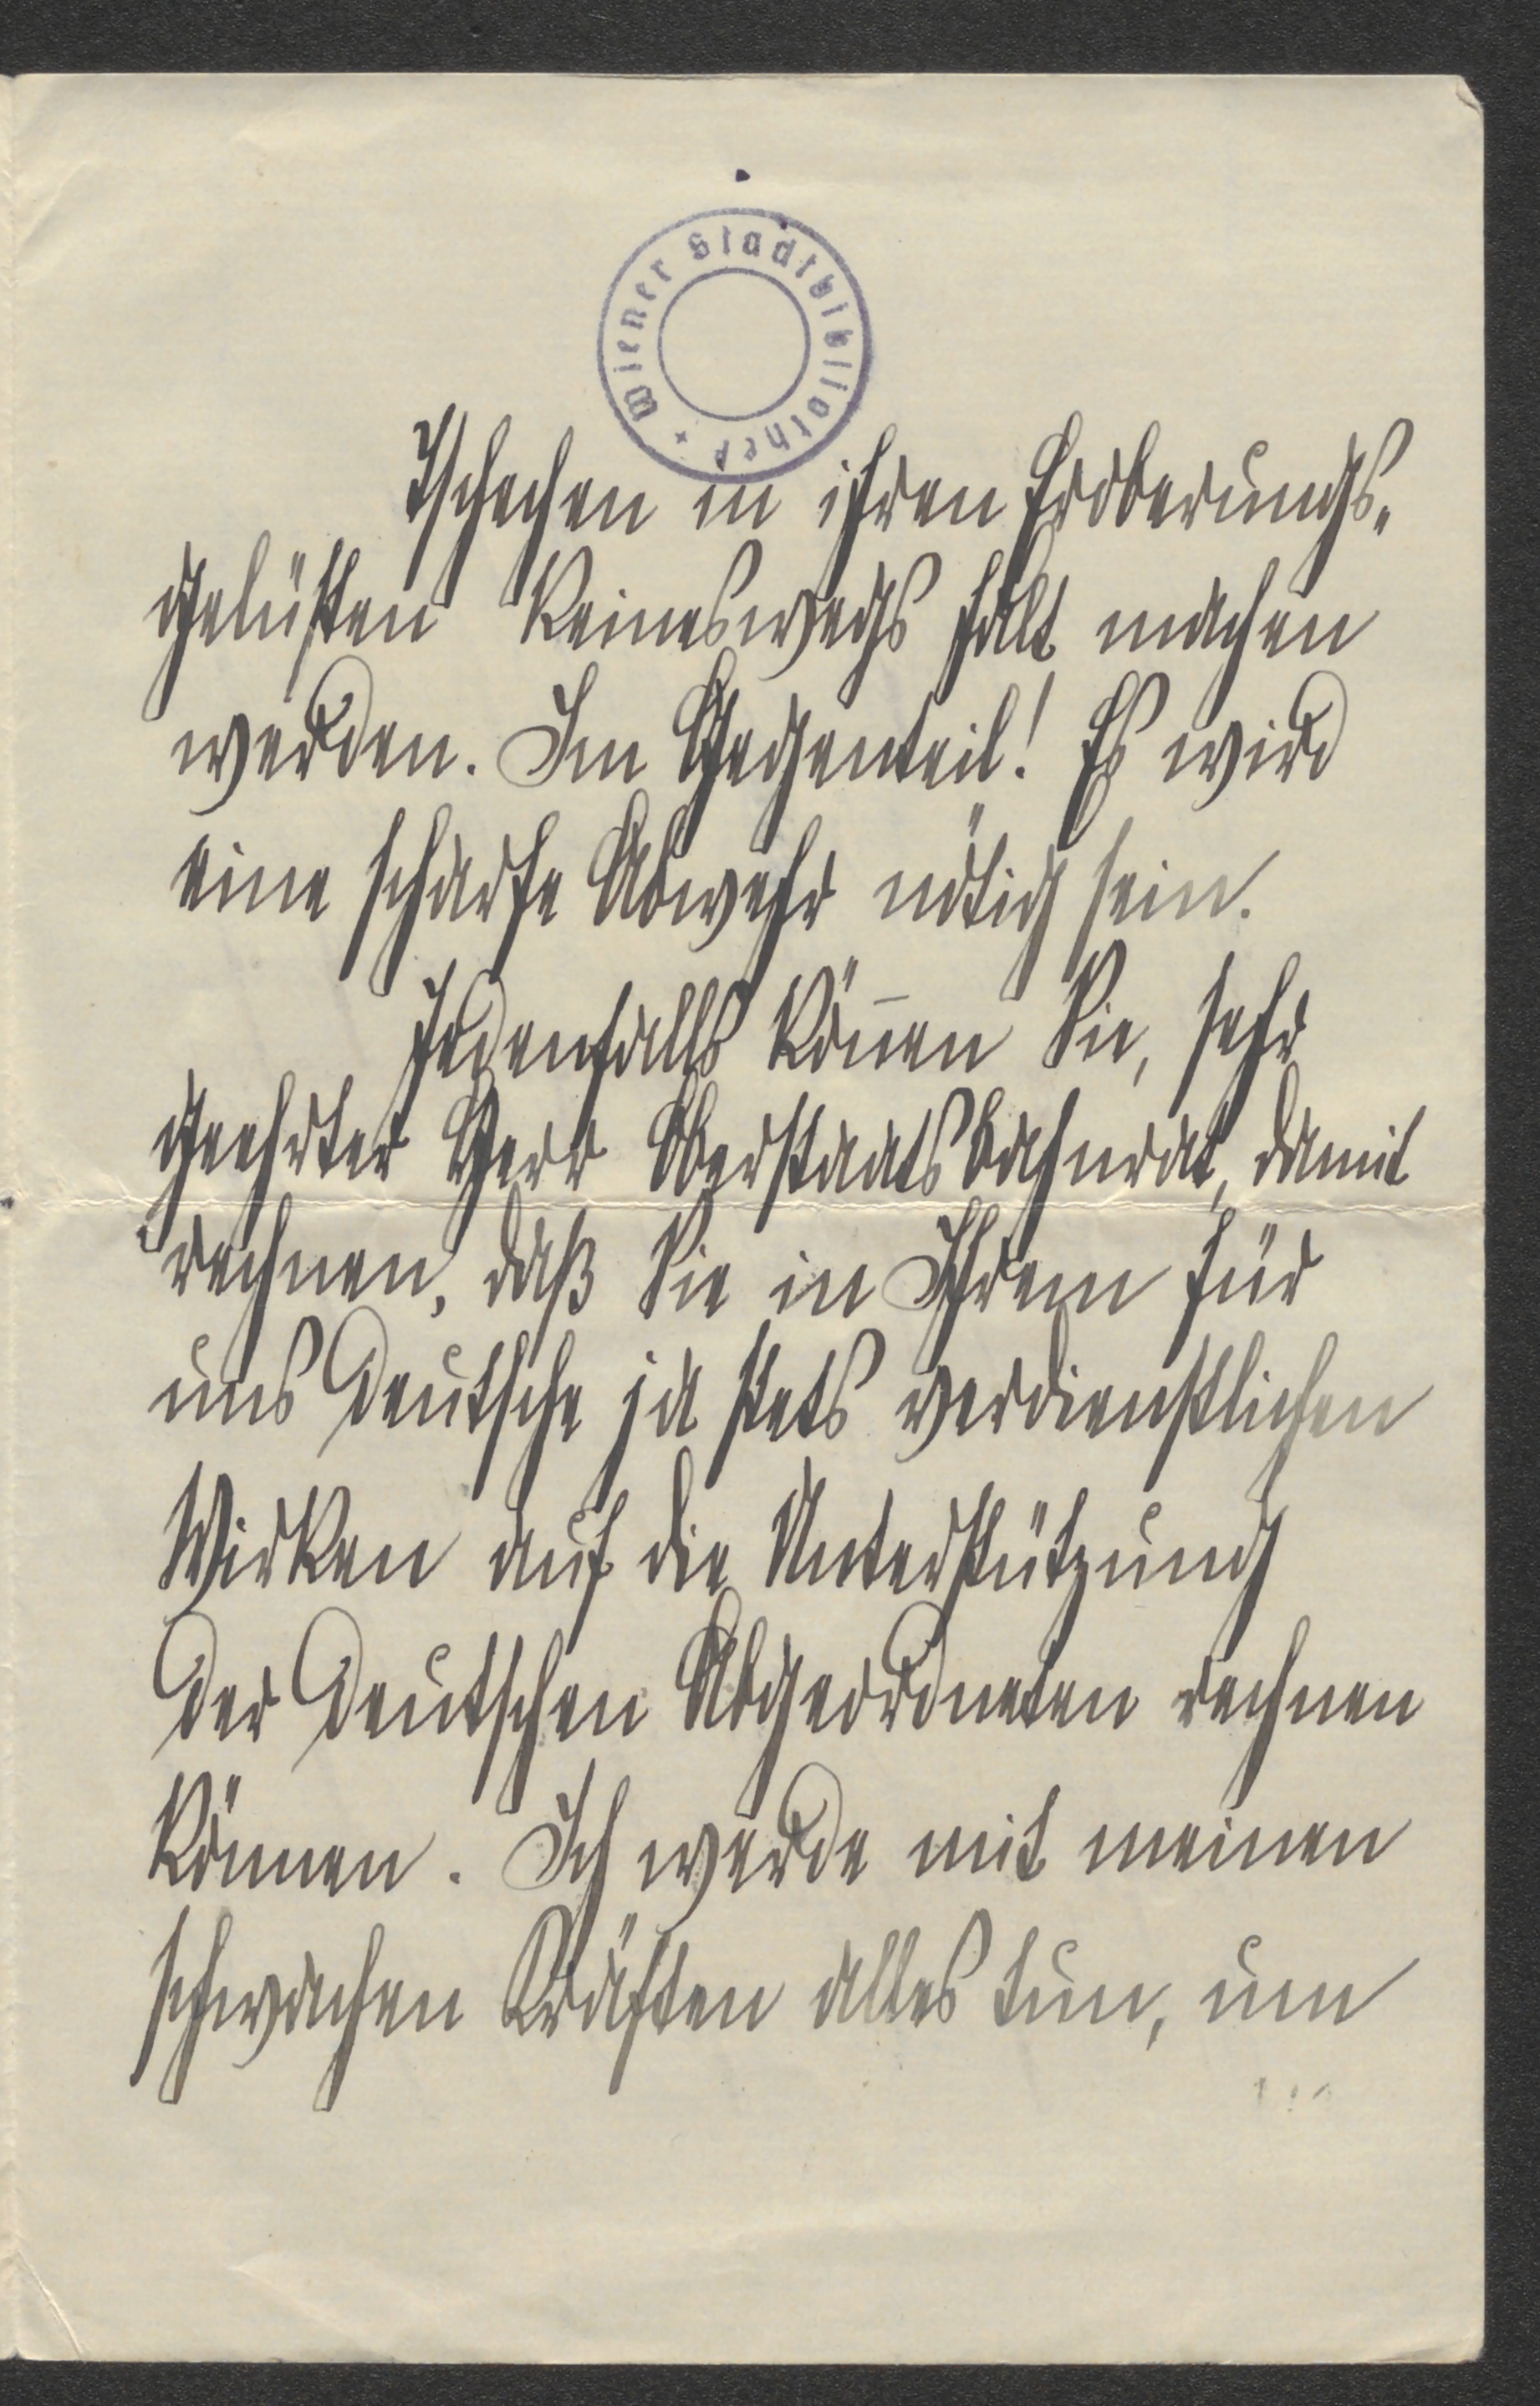 Wiener Stadtbibliothek
Tschechen in ihren Eroberungs-
gelüsten keineswegs halt machen
werden. Im Gegenteil! Es wird
eine scharfe Abwehr nötig sein.
Jedenfalls kön̅en Sie, sehr
geehrter Herr Oberstaatsbahnrat, damit
rechnen, daß Sie in Ihrem für
uns Deutsche ja stets verdienstlichen
Wirken auf die Unterstützung
der deutschen Abgeordneten rechnen
können. Ich werde mit meinen
schwachen Kräften alles tun, um